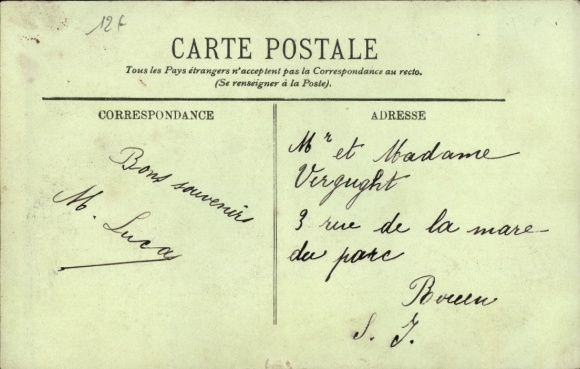 12f
CARTE POSTALE
Tous les Pays étrangers n'acceptent pas la Correspondance au recto.
(Se renseigner à la Poste).
CORRESPONDANCE
ADRESSE
Bons souvenirs
M. Luca
Mr et Madame
Vergught
3 rue de la mare
du parc
Rouen
S. I.